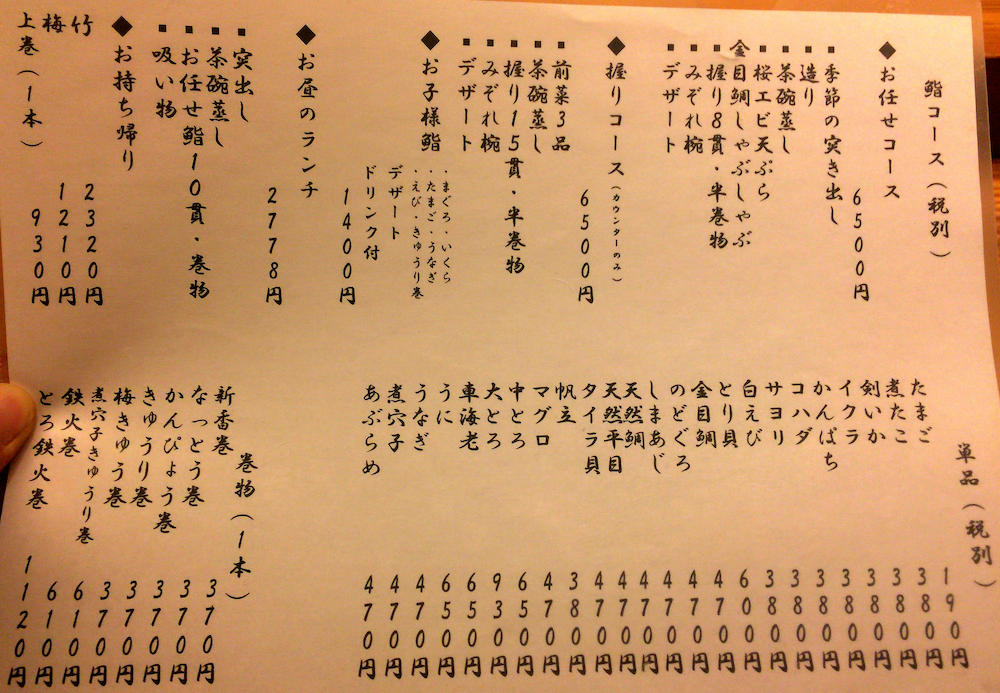 鮨コース(税別)
◆お任せコース 6500円
■季節の突き出し
■造り
■茶碗蒸し
■桜エビ天ぷら
■金目鯛しゃぶしゃぶ
■握り8貫・半巻物
■みぞれ椀
■デザート
◆握りコース(カウンターのみ) 6500円
■前菜3品
■茶碗蒸し
■握り15貫・半巻物
■みぞれ椀
■デザート
◆お子様鮨
・まぐろ・いくら
・たまご・うなぎ
・えび・きゅうり巻
デザート
ドリンク付 1400円
◆お昼のランチ 2778円
■突出し
■茶碗蒸し
■お任せ鮨10貫・巻物
■吸い物
◆お持ち帰り
竹 2320円
梅 1210円
上巻(1本) 930円
単品(税別)
たまご 190円
煮たこ 380円
剣いか 380円
イクラ 380円
かんぱち 380円
コハダ 380円
サヨリ 380円
白えび 380円
とり貝 600円
金目鯛 470円
のどぐろ 470円
しまあじ 470円
天然鯛 470円
天然平目 470円
タイラ貝 470円
帆立 380円
マグロ 470円
中とろ 650円
大とろ 930円
車海老 650円
うに 650円
うなぎ 470円
煮穴子 470円
あぶらめ 470円
巻物(1本)
新香巻 370円
なっとう巻 370円
かんぴょう巻 370円
きゅうり巻 370円
梅きゅう巻 370円
煮穴子きゅうり巻 610円
鉄火巻 610円
とろ鉄火巻 1120円